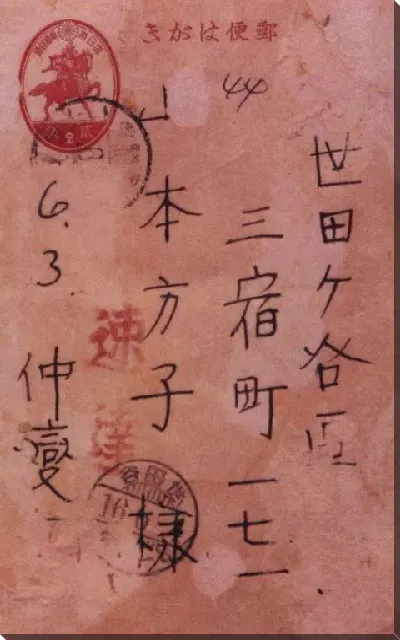 郵便はがき
世田ケ谷區
三宿町一七一
山本方子様
速達
6.3
16